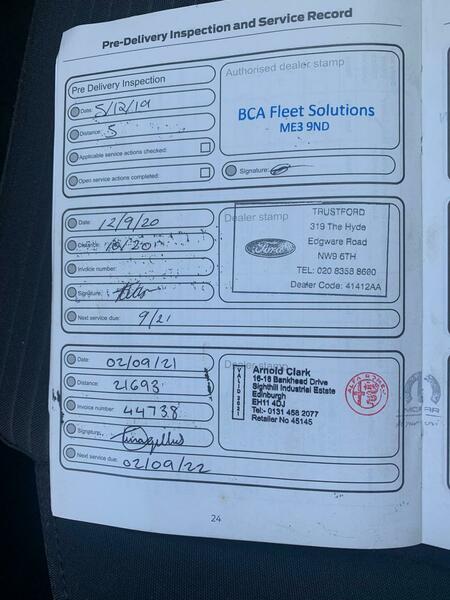 Pre-Delivery Inspection and Service Record
Pre Delivery Inspection
Date: 5/12/19
Distance: 5
Applicable service actions checked:
Open service actions completed:
Authorised dealer stamp
BCA Fleet Solutions
ME3 9ND
Signature:
Date: 12/9/20
Distance:
Invoice number:
Signature:
Next service due: 9/21
Dealer stamp
Ford
TRUSTFORD
319 The Hyde
Edgware Road
NW9 6TH
TEL: 020 8353 8600
Dealer Code: 41412AA
Date: 02/09/21
Distance: 21693
Invoice number: 44738
Signature:
Next service due: 02/09/22
Dealer stamp
VALID 2021
Arnold Clark
16-18 Bankhead Drive
Sighthill Industrial Estate
Edinburgh
EH11 4DJ
Tel:- 0131 458 2077
Retailer No 45145
ALFA ROMEO
MOPAR
24